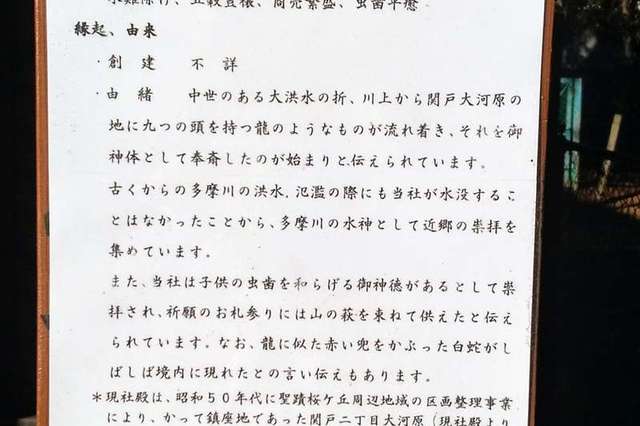 水難除け、五穀豊穣、商売繁盛、虫歯平癒
縁起、由来
・創 建 不 詳
・由 緒 中世のある大洪水の折、川上から関戸大河原の
地に九つの頭を持つ龍のようなものが流れ着き、それを御
神体として奉斎したのが始まりと伝えられています。
古くからの多摩川の洪水、氾濫の際にも当社が水没するこ
とはなかったことから、多摩川の水神として近郷の崇拝を
集めています。
また、当社は子供の虫歯を和らげる御神徳があるとして崇
拝され、祈願のお札参りには山の萩を束ねて供えたと伝え
られています。なお、龍に似た赤い兜をかぶった白蛇がし
ばしば境内に現れたとの言い伝えもあります。
＊現社殿は、昭和５０年代に聖蹟桜ケ丘周辺地域の区画整理事業
により、かって鎮座地であった関戸二丁目大河原（現社殿より